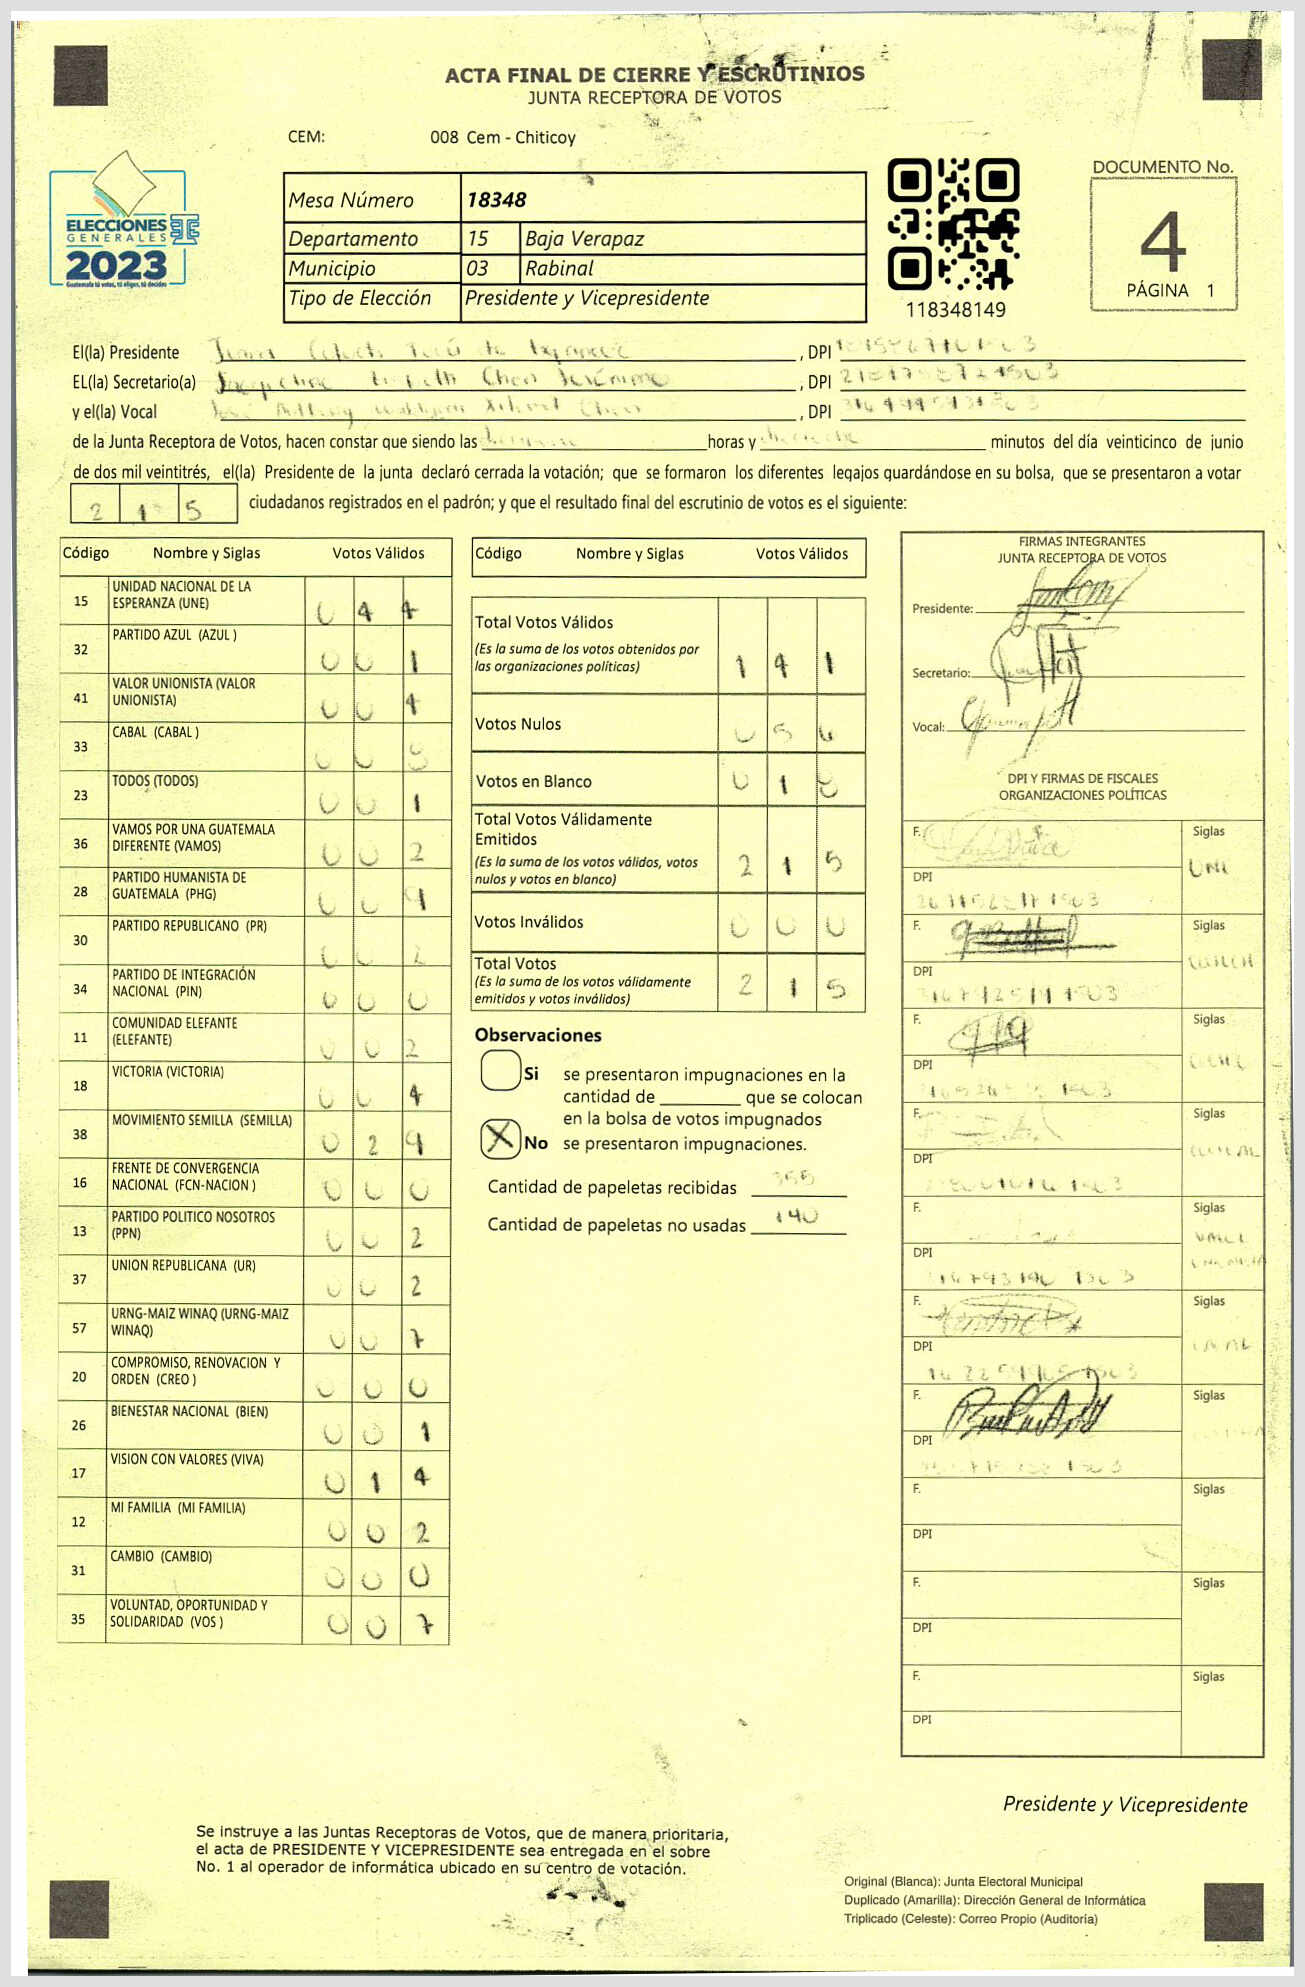 ACTA FINAL DE CIERRE Y ESCRUTINIOS
JUNTA RECEPTORA DE VOTOS
CEM: 008 Cem - Chiticoy
ELECCIONES
GENERALES
2023
Guatemala tú votas, tú eliges, tú decides
Mesa Número 18348
Departamento 15 Baja Verapaz
Municipio 03 Rabinal
Tipo de Elección Presidente y Vicepresidente
118348149
DOCUMENTO No.
4
PÁGINA 1
El(la) Presidente , DPI
EL(la) Secretario(a) , DPI
y el(la) Vocal , DPI
de la Junta Receptora de Votos, hacen constar que siendo las horas y minutos del día veinticinco de junio
de dos mil veintitrés, el(la) Presidente de la junta declaró cerrada la votación; que se formaron los diferentes legajos guardándose en su bolsa, que se presentaron a votar
2 1 5 ciudadanos registrados en el padrón; y que el resultado final del escrutinio de votos es el siguiente:
Código Nombre y Siglas Votos Válidos
15 UNIDAD NACIONAL DE LA ESPERANZA (UNE) 0 4 4
32 PARTIDO AZUL (AZUL ) 0 0 1
41 VALOR UNIONISTA (VALOR UNIONISTA) 0 0 4
33 CABAL (CABAL ) 0 0
23 TODOS (TODOS) 0 0 1
36 VAMOS POR UNA GUATEMALA DIFERENTE (VAMOS) 0 0 2
28 PARTIDO HUMANISTA DE GUATEMALA (PHG) 0 0 9
30 PARTIDO REPUBLICANO (PR) 0 0 2
34 PARTIDO DE INTEGRACIÓN NACIONAL (PIN) 0 0 0
11 COMUNIDAD ELEFANTE (ELEFANTE) 0 0 2
18 VICTORIA (VICTORIA) 0 0 4
38 MOVIMIENTO SEMILLA (SEMILLA) 0 2 9
16 FRENTE DE CONVERGENCIA NACIONAL (FCN-NACION ) 0 0 0
13 PARTIDO POLITICO NOSOTROS (PPN) 0 0 2
37 UNION REPUBLICANA (UR) 0 0 2
57 URNG-MAIZ WINAQ (URNG-MAIZ WINAQ) 0 0 7
20 COMPROMISO, RENOVACION Y ORDEN (CREO ) 0 0 0
26 BIENESTAR NACIONAL (BIEN) 0 0 1
17 VISION CON VALORES (VIVA) 0 1 4
12 MI FAMILIA (MI FAMILIA) 0 0 2
31 CAMBIO (CAMBIO) 0 0 0
35 VOLUNTAD, OPORTUNIDAD Y SOLIDARIDAD (VOS ) 0 0 7
Código Nombre y Siglas Votos Válidos
Total Votos Válidos 1 4 1
(Es la suma de los votos obtenidos por
las organizaciones políticas)
Votos Nulos 0 5 6
Votos en Blanco 0 1 8
Total Votos Válidamente
Emitidos
(Es la suma de los votos válidos, votos
nulos y votos en blanco) 2 1 5
Votos Inválidos 0 0 0
Total Votos
(Es la suma de los votos válidamente
emitidos y votos inválidos) 2 1 5
Observaciones
Si se presentaron impugnaciones en la
cantidad de ________ que se colocan
en la bolsa de votos impugnados
X No se presentaron impugnaciones.
Cantidad de papeletas recibidas 355
Cantidad de papeletas no usadas 140
FIRMAS INTEGRANTES
JUNTA RECEPTORA DE VOTOS
Presidente:
Secretario:
Vocal:
DPI Y FIRMAS DE FISCALES
ORGANIZACIONES POLÍTICAS
F. Siglas
UNE
DPI
F. Siglas
DPI
F. Siglas
DPI
F. Siglas
DPI
F. Siglas
DPI
F. Siglas
DPI
F. Siglas
DPI
F. Siglas
DPI
F. Siglas
DPI
F. Siglas
DPI
Presidente y Vicepresidente
Se instruye a las Juntas Receptoras de Votos, que de manera prioritaria,
el acta de PRESIDENTE Y VICEPRESIDENTE sea entregada en el sobre
No. 1 al operador de informática ubicado en su centro de votación.
Original (Blanca): Junta Electoral Municipal
Duplicado (Amarilla): Dirección General de Informática
Triplicado (Celeste): Correo Propio (Auditoría)